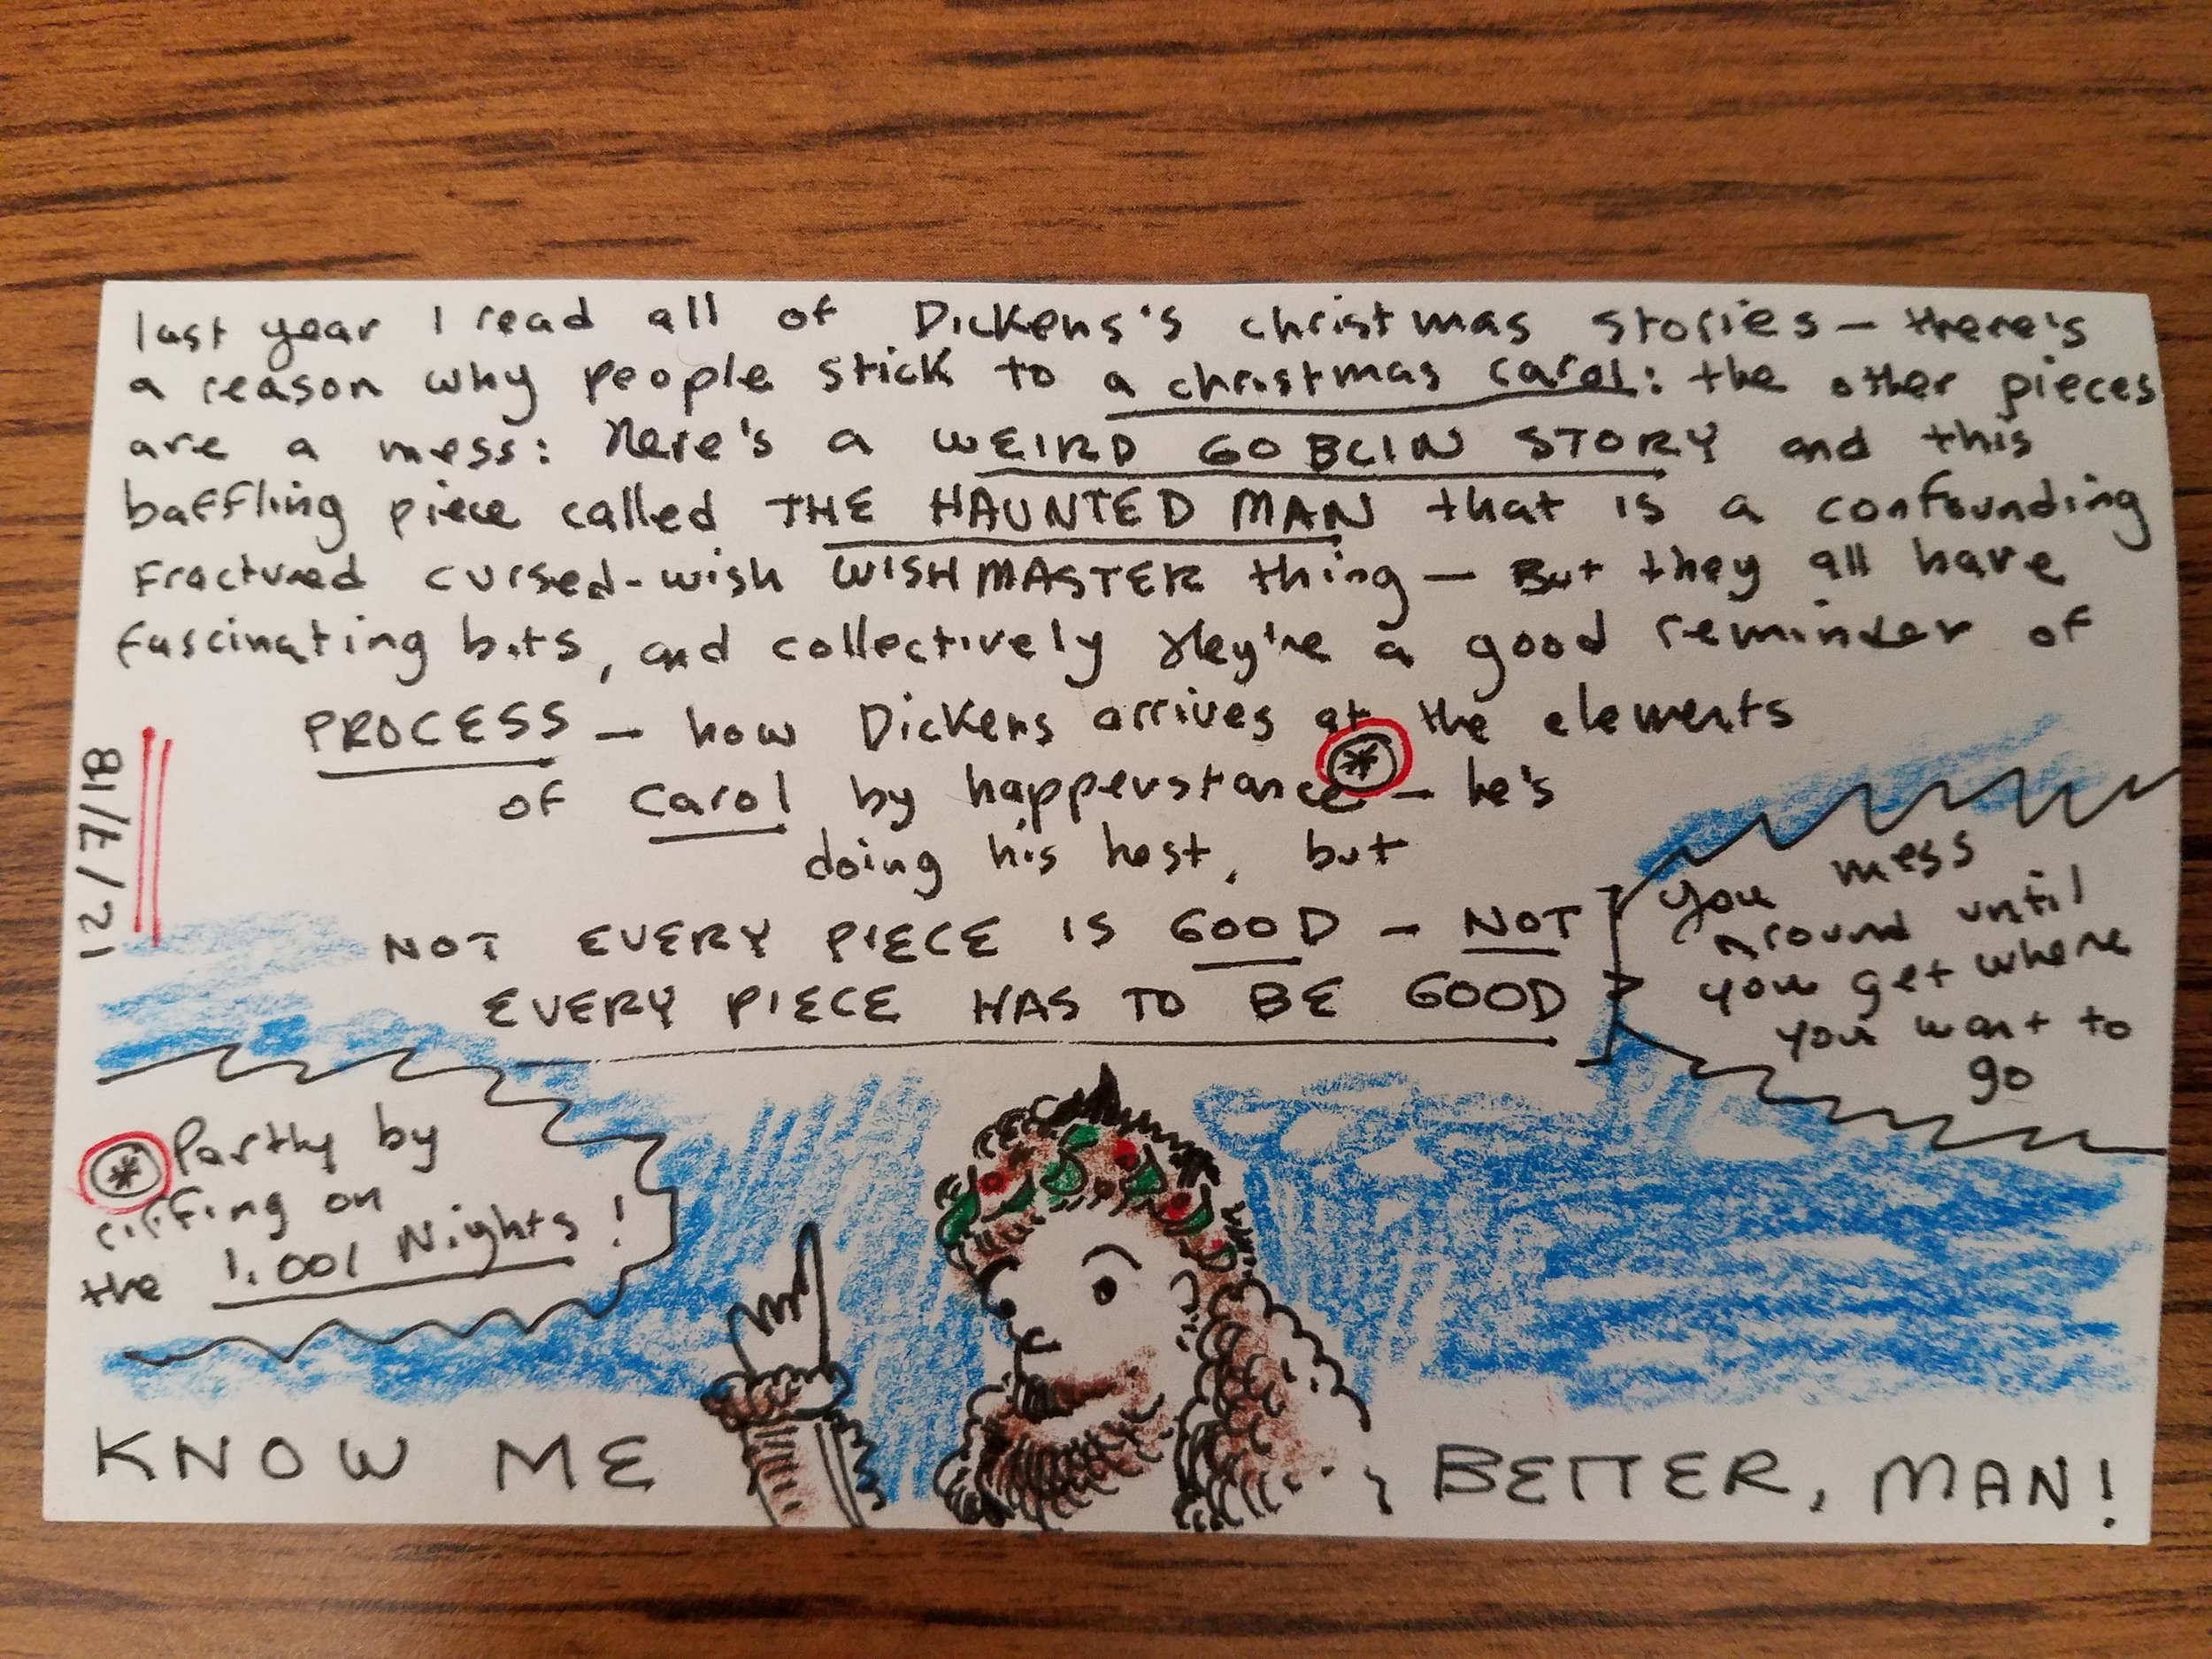 last year I read all of Dickens's christmas stories — there's
a reason why people stick to a christmas carol: the other pieces
are a mess: Here's a WEIRD GOBLIN STORY and this
baffling piece called THE HAUNTED MAN that is a confounding
fractured cursed-wish WISHMASTER thing — But they all have
fascinating bits, and collectively they're a good reminder of
PROCESS — how Dickens arrives at the elements
of Carol by happenstance * — he's
doing his best, but
NOT EVERY PIECE IS GOOD — NOT
EVERY PIECE HAS TO BE GOOD
you mess
around until
you get where
you want to
go
12/7/18
* Partly by
riffing on
the 1,001 Nights!
KNOW ME BETTER, MAN!